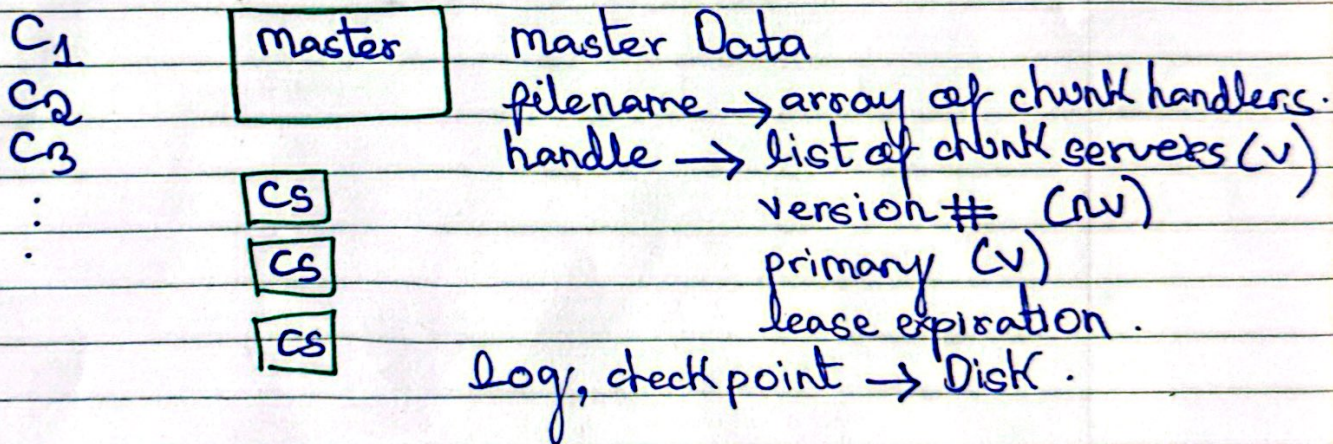 C1 master master Data
C2 filename → array of chunk handlers.
C3 handle → list of chunk servers (v)
: CS version # (nv)
. CS primary (v)
CS lease expiration.
Log, check point → Disk.